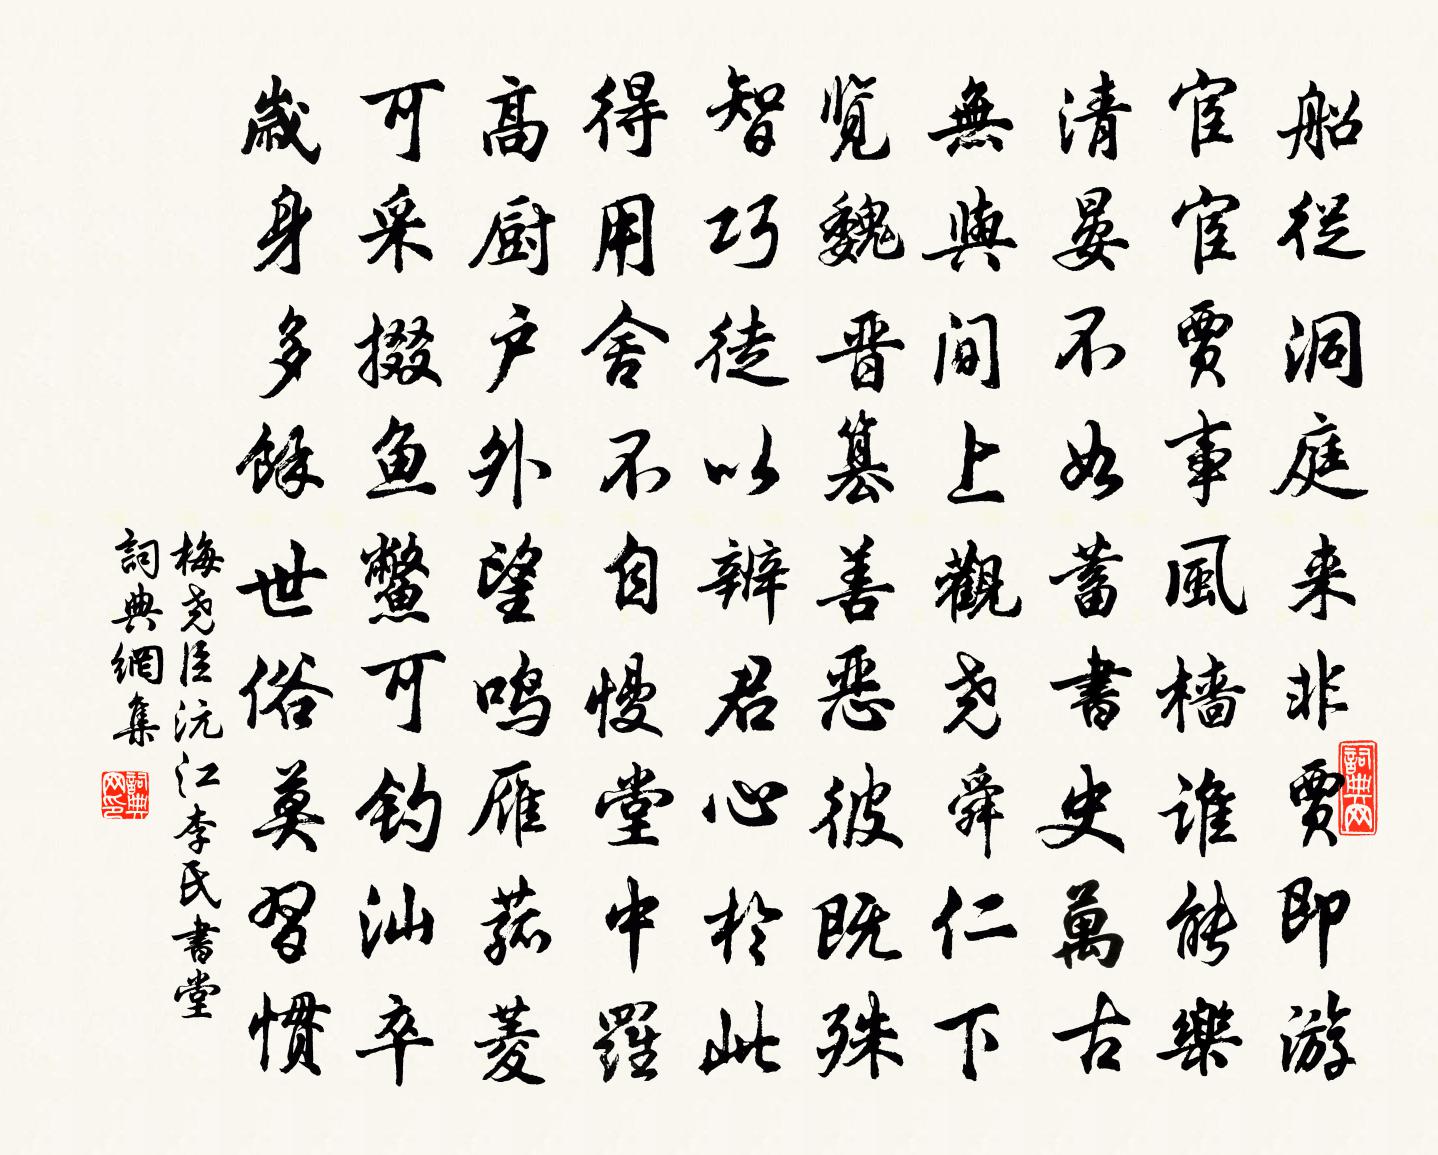 船從洞庭来非賈即游
宦宦賈事風檣誰能樂
清晏不如蓄書史萬古
無與間上觀尧舜仁下
覧魏晋篡善恶彼既殊
智巧徒以辨君心於此
得用舍不自慢堂中羅
高厨户外望鸣雁菰菱
可采掇鱼鱉可钓汕卒
歲身多餘世俗莫習慣
梅尧臣沅江李氏書堂
詞典網集
詞典网
詞典网印